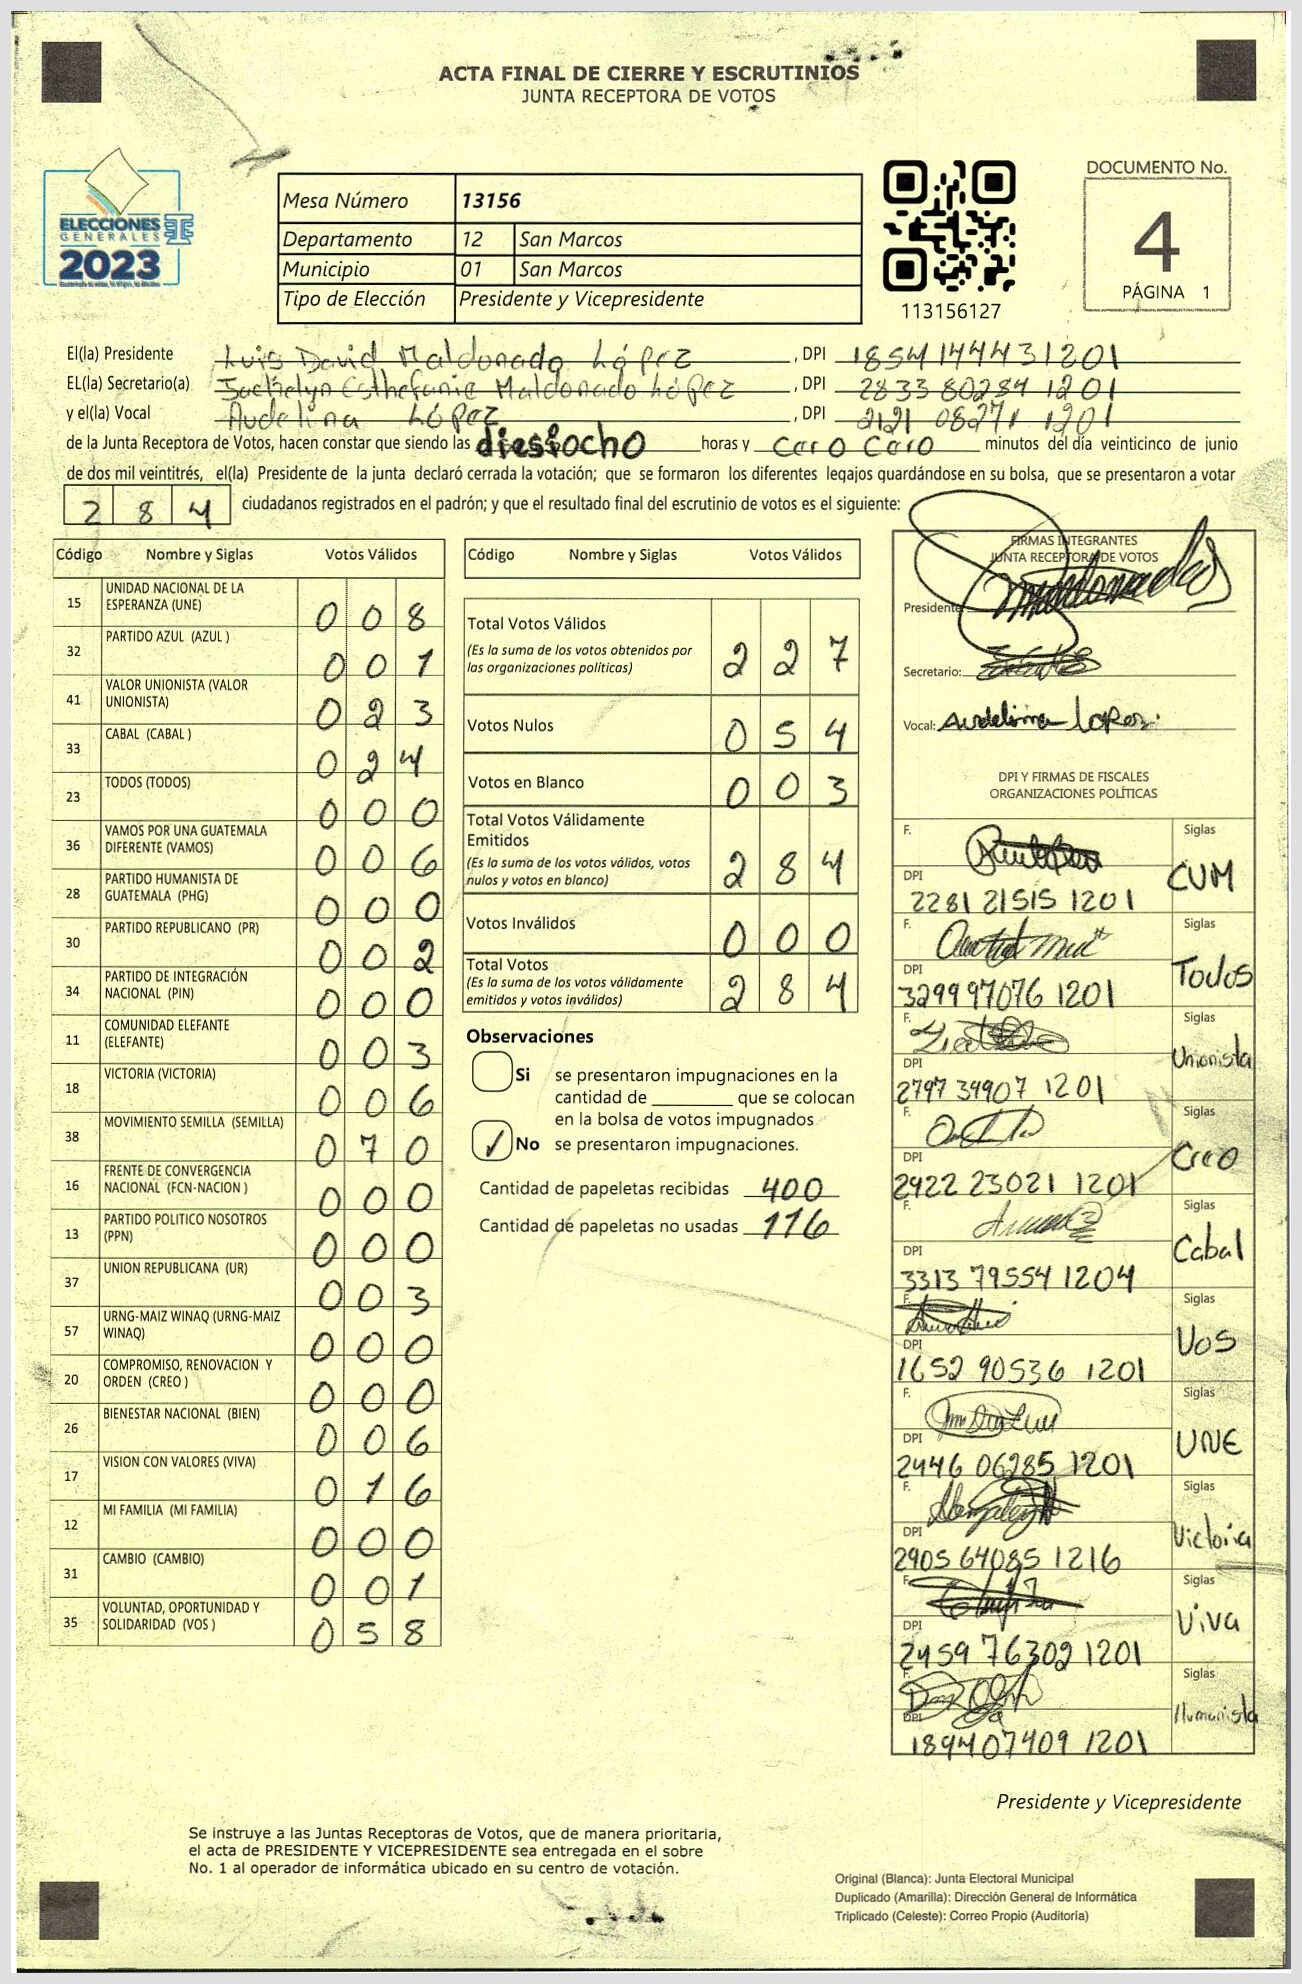 ACTA FINAL DE CIERRE Y ESCRUTINIOS
JUNTA RECEPTORA DE VOTOS
ELECCIONES
GENERALES
2023
Mesa Número 13156
Departamento 12 San Marcos
Municipio 01 San Marcos
Tipo de Elección Presidente y Vicepresidente
113156127
DOCUMENTO No.
4
PÁGINA 1
El(la) Presidente Luis David Maldonado López , DPI 1854144431201
EL(la) Secretario(a) Jackelyn Esthefanie Maldonado López , DPI 2833 80284 1201
y el(la) Vocal Audelina López , DPI 2121 08271 1201
de la Junta Receptora de Votos, hacen constar que siendo las diesiocho horas y cero cero minutos del día veinticinco de junio
de dos mil veintitrés, el(la) Presidente de la junta declaró cerrada la votación; que se formaron los diferentes legajos guardándose en su bolsa, que se presentaron a votar
2 8 4 ciudadanos registrados en el padrón; y que el resultado final del escrutinio de votos es el siguiente:
Código Nombre y Siglas Votos Válidos
15 UNIDAD NACIONAL DE LA ESPERANZA (UNE) 0 0 8
32 PARTIDO AZUL (AZUL ) 0 0 1
41 VALOR UNIONISTA (VALOR UNIONISTA) 0 2 3
33 CABAL (CABAL ) 0 2 4
23 TODOS (TODOS) 0 0 0
36 VAMOS POR UNA GUATEMALA DIFERENTE (VAMOS) 0 0 6
28 PARTIDO HUMANISTA DE GUATEMALA (PHG) 0 0 0
30 PARTIDO REPUBLICANO (PR) 0 0 2
34 PARTIDO DE INTEGRACIÓN NACIONAL (PIN) 0 0 0
11 COMUNIDAD ELEFANTE (ELEFANTE) 0 0 3
18 VICTORIA (VICTORIA) 0 0 6
38 MOVIMIENTO SEMILLA (SEMILLA) 0 7 0
16 FRENTE DE CONVERGENCIA NACIONAL (FCN-NACION ) 0 0 0
13 PARTIDO POLITICO NOSOTROS (PPN) 0 0 0
37 UNION REPUBLICANA (UR) 0 0 3
57 URNG-MAIZ WINAQ (URNG-MAIZ WINAQ) 0 0 0
20 COMPROMISO, RENOVACION Y ORDEN (CREO ) 0 0 0
26 BIENESTAR NACIONAL (BIEN) 0 0 6
17 VISION CON VALORES (VIVA) 0 1 6
12 MI FAMILIA (MI FAMILIA) 0 0 0
31 CAMBIO (CAMBIO) 0 0 1
35 VOLUNTAD, OPORTUNIDAD Y SOLIDARIDAD (VOS ) 0 5 8
Código Nombre y Siglas Votos Válidos
Total Votos Válidos 2 2 7
(Es la suma de los votos obtenidos por
las organizaciones políticas)
Votos Nulos 0 5 4
Votos en Blanco 0 0 3
Total Votos Válidamente
Emitidos 2 8 4
(Es la suma de los votos válidos, votos
nulos y votos en blanco)
Votos Inválidos 0 0 0
Total Votos 2 8 4
(Es la suma de los votos válidamente
emitidos y votos inválidos)
Observaciones
Si se presentaron impugnaciones en la
cantidad de ________ que se colocan
en la bolsa de votos impugnados
✓ No se presentaron impugnaciones.
Cantidad de papeletas recibidas 400
Cantidad de papeletas no usadas 116
FIRMAS INTEGRANTES
JUNTA RECEPTORA DE VOTOS
Presidente:
Secretario:
Vocal: Audelina Lopez
DPI Y FIRMAS DE FISCALES
ORGANIZACIONES POLÍTICAS
F. Siglas
DPI 2281 21515 1201 CUM
F. Siglas
DPI 3299 97076 1201 Todos
F. Siglas
DPI 2797 34907 1201 Unionista
F. Siglas
DPI 2422 23021 1201 Creo
F. Siglas
DPI 3313 79554 1204 Cabal
F. Siglas
DPI 1652 90536 1201 VOS
F. Siglas
DPI 2446 06285 1201 UNE
F. Siglas
DPI 2905 64085 1216 Victoria
F. Siglas
DPI 2459 76302 1201 Viva
F. Siglas
DPI 1894 07409 1201 Humanista
Presidente y Vicepresidente
Se instruye a las Juntas Receptoras de Votos, que de manera prioritaria,
el acta de PRESIDENTE Y VICEPRESIDENTE sea entregada en el sobre
No. 1 al operador de informática ubicado en su centro de votación.
Original (Blanca): Junta Electoral Municipal
Duplicado (Amarilla): Dirección General de Informática
Triplicado (Celeste): Correo Propio (Auditoría)